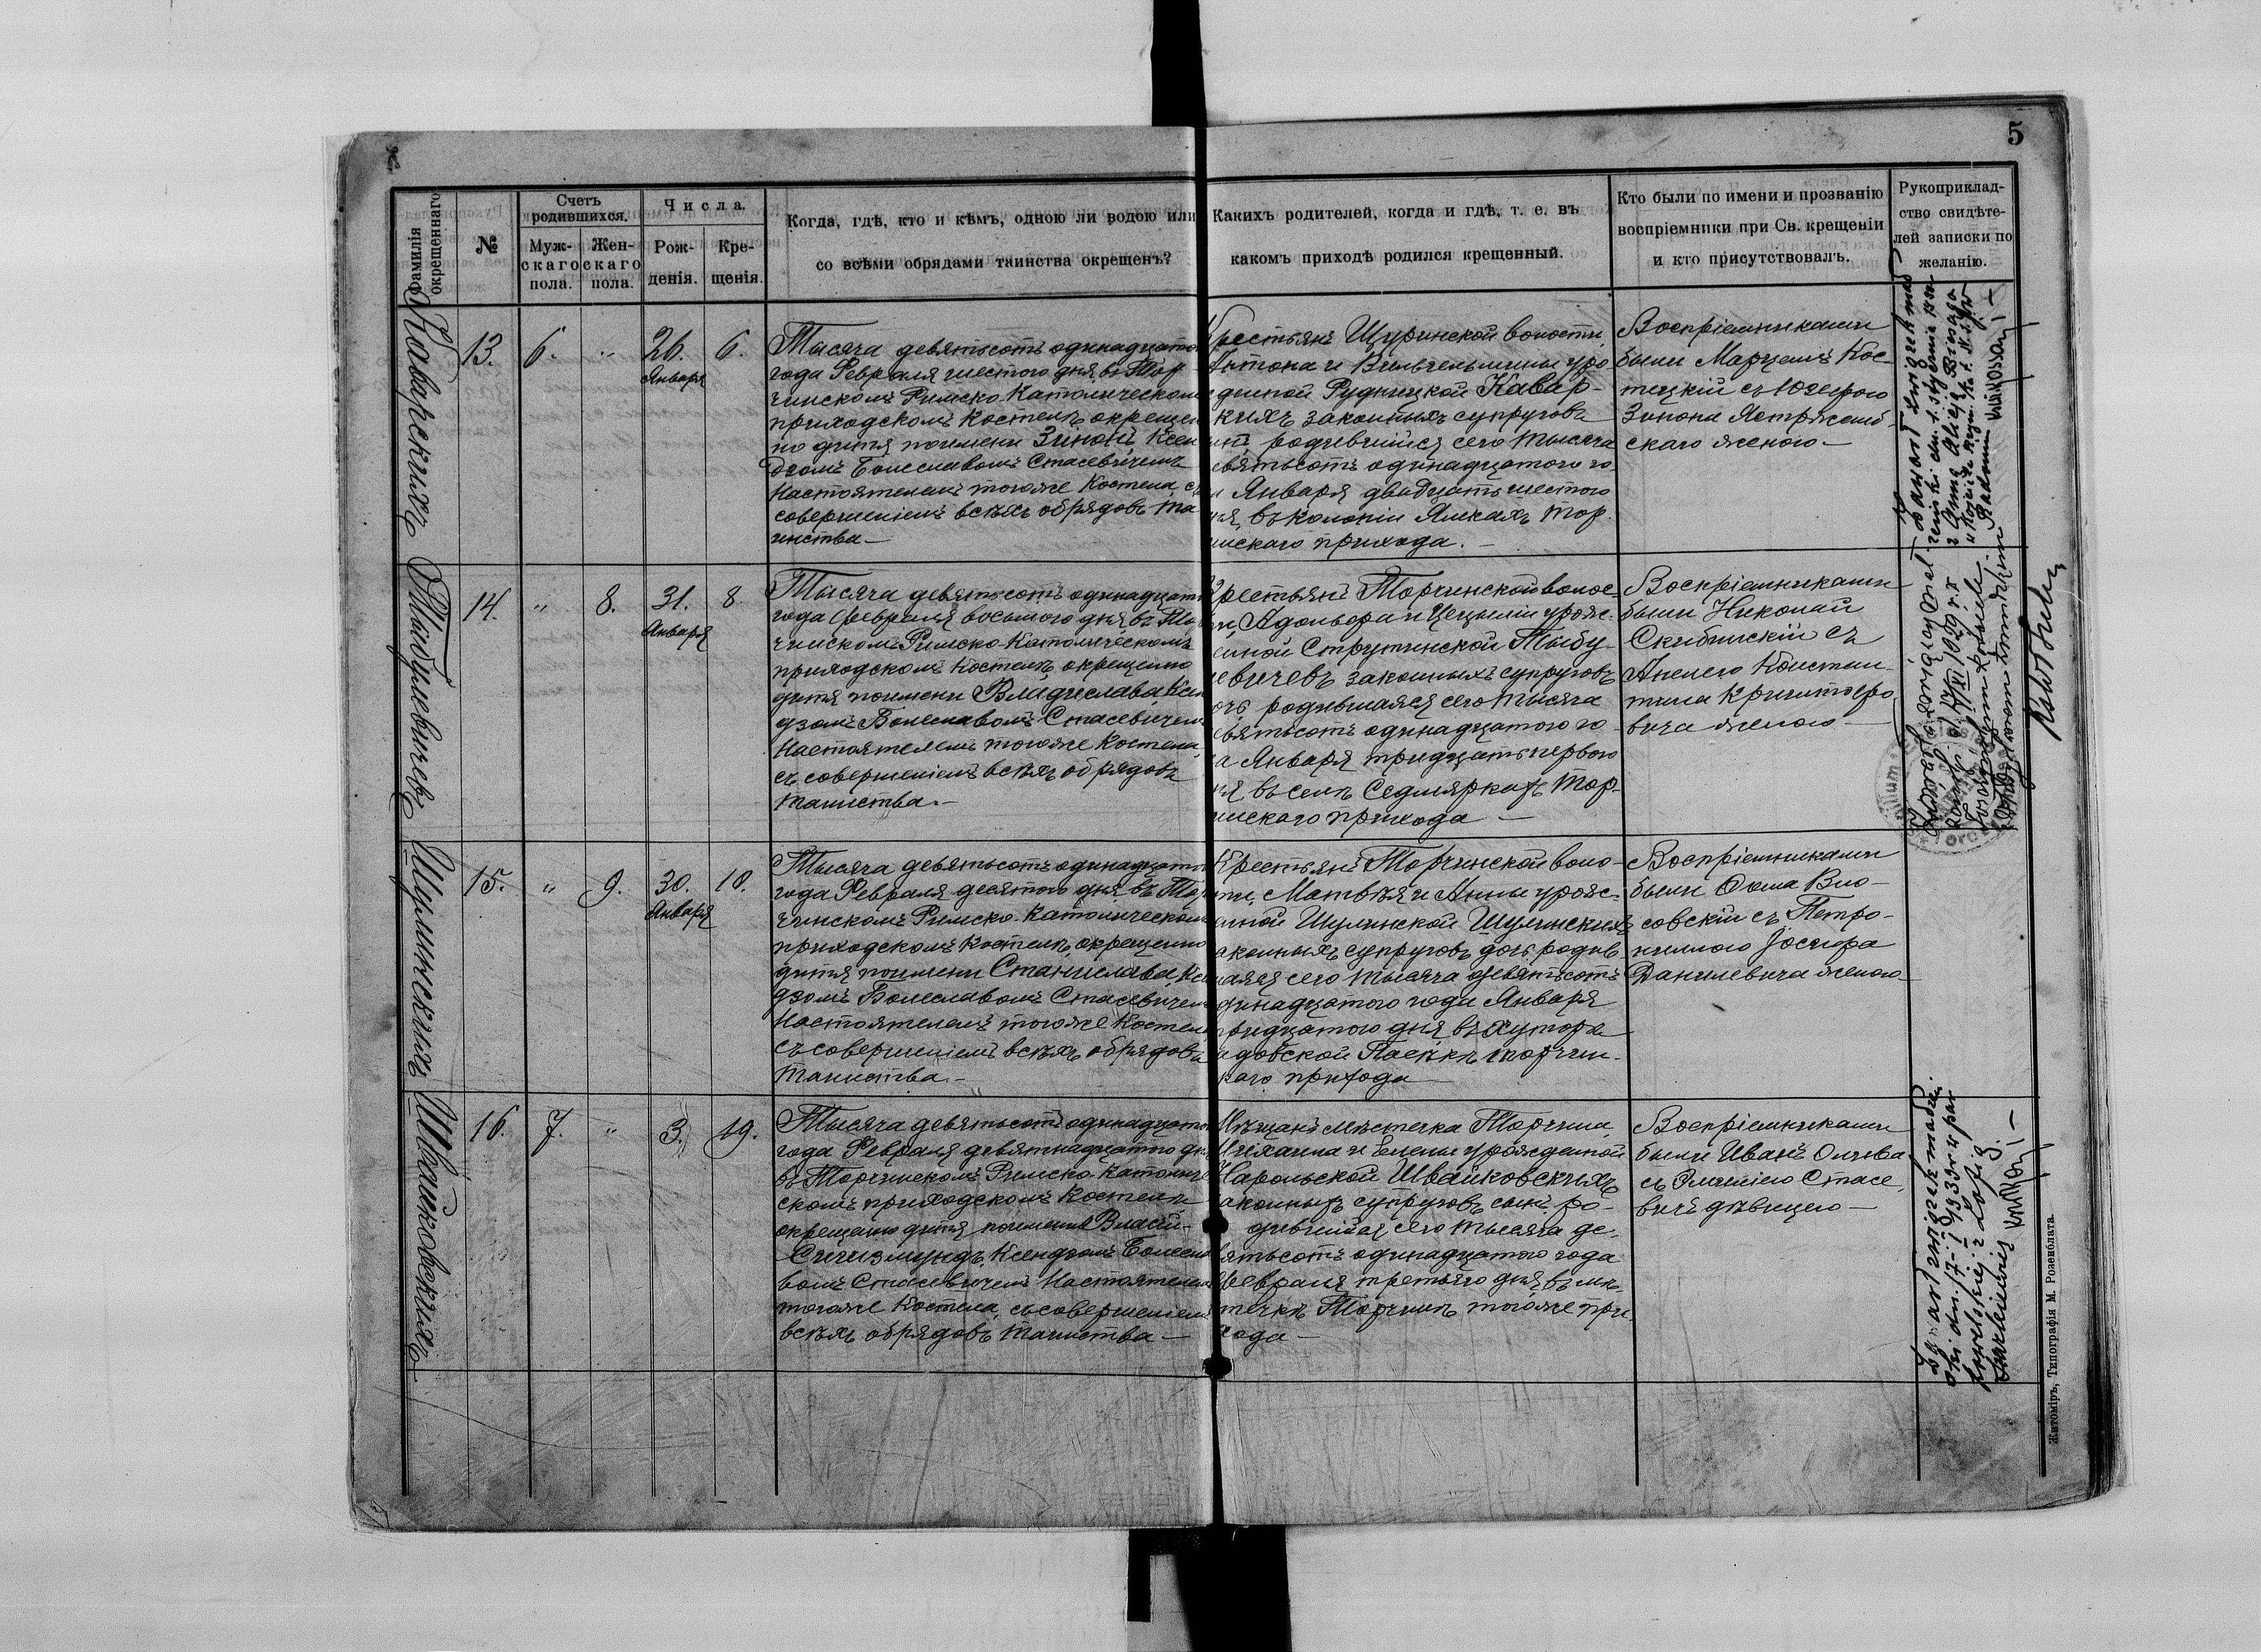 5
Фамилія окрещеннаго
№
Счетъ родившихся.
Мужскаго пола.
Женскаго пола.
Числа.
Рожденія.
Крещенія.
Когда, гдѣ, кто и кѣмъ, одною ли водою или
со всѣми обрядами таинства окрещенъ?
Какихъ родителей, когда и гдѣ, т. е. въ
какомъ приходѣ родился крещенный.
Кто были по имени и прозванію
воспріемники при Св. крещеніи
и кто присутствовалъ.
Рукоприклад-
ство свидѣте-
лей записки по
желанію.
Каворскихъ
13.
6.
"
26.
Января
6.
Тысяча девятьсотъ одинадцато
года Февраля шестого дня, въ Тор
чинскомъ Римско-Католическомъ
приходскомъ Костелѣ окрещен
но дитя поимени Зинонъ, Ксен
дзомъ Болеславомъ Стасевичемъ
Настоятелемъ тогоже Костела, съ
совершеніемъ всѣхъ обрядовъ та
инства—
рестьянъ Щуринской волости
Антона и Вильгельмины уро
денной Рудницкой Кавор-
кихъ законныхъ супруговъ
родившійся сего тысяча
евятьсотъ одинадцатого го
Января двадцать шестого
въ колоніи Ямкахъ Тор
инскаго прихода.—
Воспріемниками
были Марцелъ Кос-
тецкій съ Юзефою
Зинона Ястржемб-
скаго женою.—
Тыбулевичевъ
14.
"
8.
31.
Января
8.
Тысяча девятьсотъ одинадцат
года Февраля восьмого дня въ То
чинскомъ Римско-Католическомъ
приходскомъ Костелѣ, окрещенно
дитя поимени Владислава, Ксен
дзомъ Болеславомъ Стасевичем
Настоятелемъ тогоже Костела,
съ совершеніемъ всѣхъ обрядовъ
таинства.—
рестьянъ Торчинской волос-
Адольфа и Цецыліи урож-
нной Струтинской Тыбу-
евичевъ законныхъ супруговъ
очь родившаяся сего тысяча
евятьсотъ одинадцатого го
а Января тридцать первого
въ селѣ Седмяркахъ Тор-
инскаго прихода—
Воспріемниками
были Николай
Скибинскій съ
Анелею Констан-
тина Криштофо-
вича женою—
Шулинскихъ
15.
"
9.
30.
Января
10.
Тысяча девятьсотъ одинадцато
года Февраля десятого дня, въ Тор
чинскомъ Римско-Католическом
приходскомъ Костелѣ, окрещенно
дитя поимени Станислава, Ксе
дзомъ Болеславомъ Стасевичем
Настоятелемъ тогоже Костел
съ совершеніемъ всѣхъ обрядовъ
таинства.—
Крестьянъ Торчинской воло-
ти, Матвѣя и Анны урож-
нной Шулинской Шулинскихъ
аконныхъ супруговъ дочь родив
аяся сего тысяча девятьсотъ
динадцатого года Января
ридцатого дня въ хуторѣ
адовской Пасѣкѣ Торчин-
каго прихода
Воспріемниками
были Ѳома Вно-
совскій съ Петро-
нилею Іосифа
Данилевича женою—
Швайковскихъ
16.
7.
"
3.
19.
Тысяча девятьсотъ одинадцато
года Февраля девятнадцатого дн
въ Торчинскомъ Римско-Католиче
скомъ приходскомъ Костелѣ
окрещенно дитя поимени
Сигизмундъ, Ксендзомъ Болесла
вомъ Стасевичемъ Настоятелем
тогоже Костела, съ совершеніем
всѣхъ обрядовъ таинства—
Мѣщанъ мѣстечка Торчина
Михаила и Елены урожденной
Карольской Швайковскихъ
аконныхъ супруговъ сынъ ро-
дившійся сего тысяча де-
вятьсотъ одинадцатого года
Февраля третьяго дня, въ мѣ
течкѣ Торчинѣ тогоже при
хода—
Воспріемниками
были Иванъ
съ Эмиліею Стасе
вичъ дѣвицею—
Житоміръ, Типографія М. Розенблата.